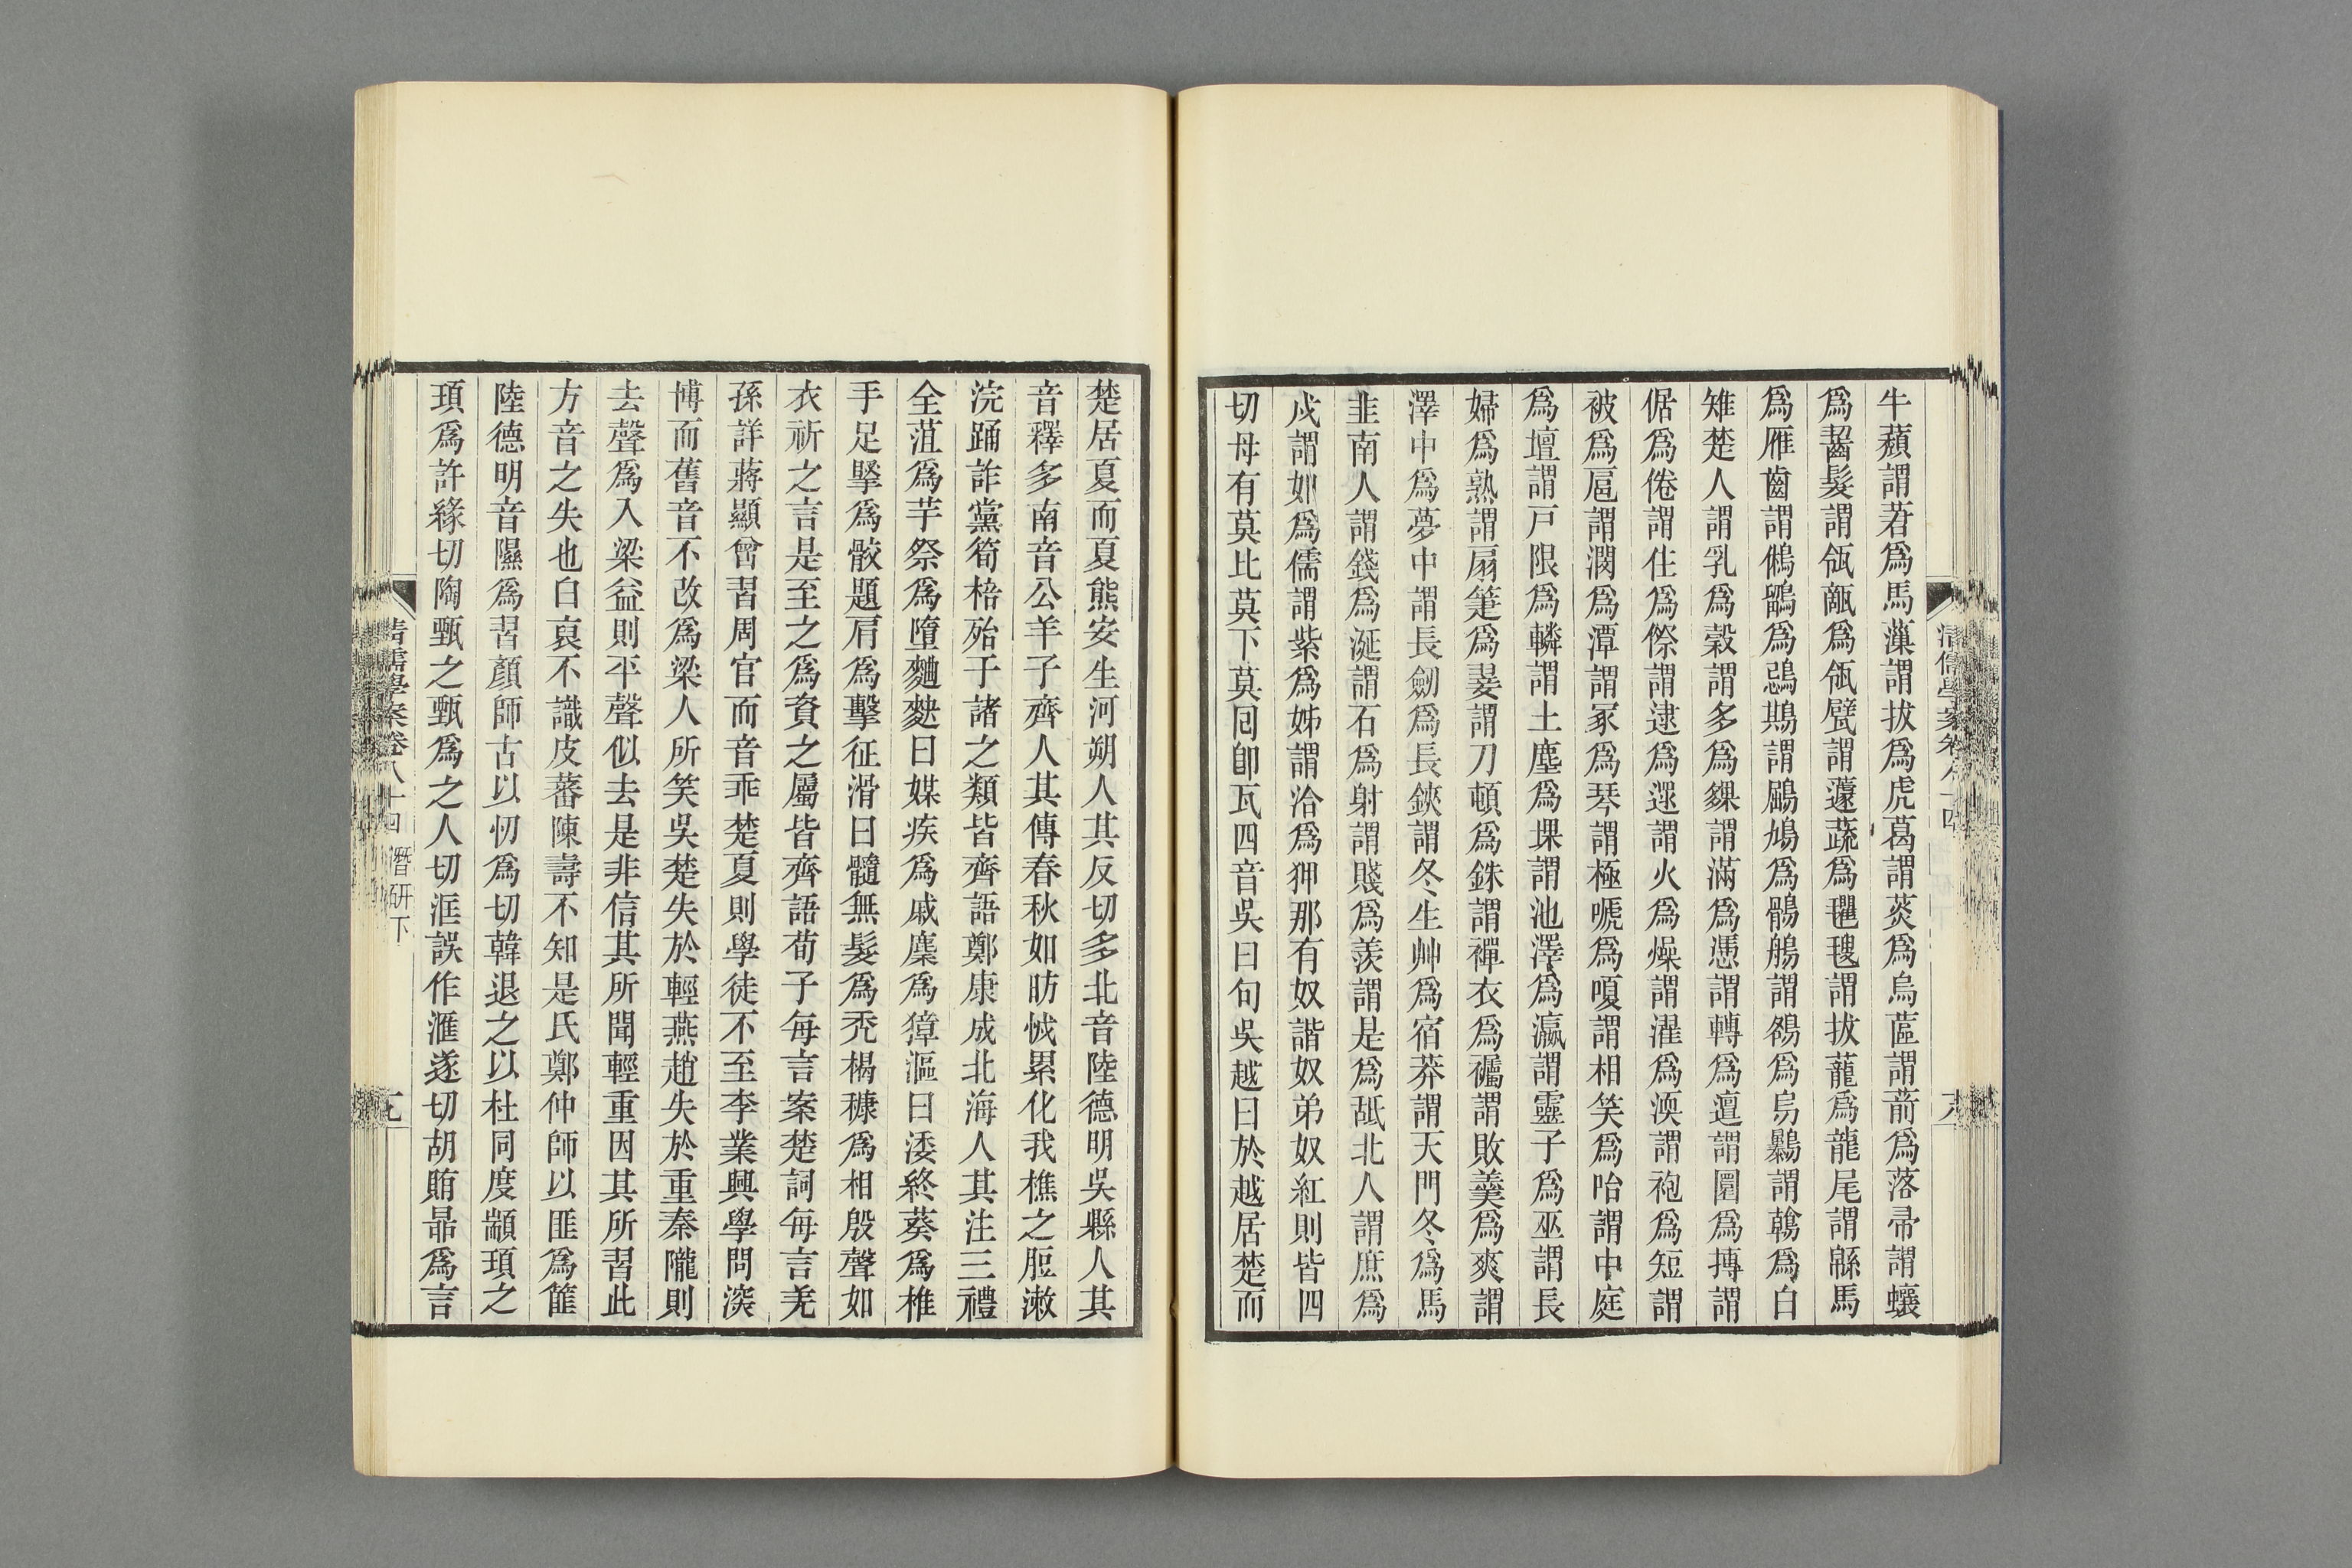 牛蘈謂莙爲馬薻謂拔爲虎葛謂菼爲烏蓲謂葥爲落帚謂蠰
爲齧髮謂瓴甋爲瓴甓謂蘧蔬爲氍毹謂拔蘢爲龍尾謂緜馬
爲雁齒謂鵂鶹爲鵋鶀謂鶌鳩爲鶻鵃謂鵒爲鳥鸔謂鶾爲白
雉楚人謂乳爲穀謂多爲夥謂滿爲憑謂轉爲邅謂圜爲摶謂
倨爲倦謂住爲傺謂逮爲遝謂火爲燥謂濯爲涹謂袍爲短謂
被爲扈謂潤爲潭謂冢爲琴謂極嗁爲嗄謂相笑爲咍謂中庭
爲壇謂戸限爲轔謂土塵爲堁謂池澤爲瀛謂靈子爲巫謂長
婦爲熟謂扇箑爲翣謂刀頓爲銖謂襌衣爲襹謂敗羹爲爽謂
澤中爲夢中謂長劒爲長鋏謂冬生艸爲宿莽謂天門冬爲馬
韭南人謂錢爲涎謂石爲射謂賤爲羨謂是爲舐北人謂庶爲
戍謂如爲儒謂紫爲姊謂洽爲狎那有奴諧奴弟奴紅則皆四
切母有莫比莫下莫囘卽瓦四音吳曰句吳越曰於越居楚而
清儒學案卷八十四
六
楚居夏而夏熊安生河朔人其反切多北音陸德明吳縣人其
音釋多南音公羊子齊人其傳春秋如昉悈累化我樵之脰漱
浣踊詐黨筍棓殆于諸之類皆齊語鄭康成北海人其注三禮
全菹爲芋祭爲墮麯麩曰媒疾爲戚麇爲獐漚曰涹終葵爲椎
手足掔爲骹題肩爲擊征滑曰髓無髮爲禿楬穅爲相殷聲如
衣祈之言是至之爲資之屬皆齊語荀子每言案楚詞每言羌
孫詳蔣顯曾習周官而音乖楚夏則學徒不至李業興學問湥
博而舊音不改爲梁人所笑吳楚失於輕燕趙失於重秦隴則
去聲爲入梁益則平聲似去是非信其所聞輕重因其所習此
方音之失也白裒不識皮蕃陳壽不知是氏鄭仲師以匪爲篚
陸德明音隰爲習顏師古以忉爲切韓退之以杜同度顓頊之
頊爲許緣切陶甄之甄爲之人切洭誤作滙遂切胡賄曓爲言
清儒學案卷八十四 潛研下
七